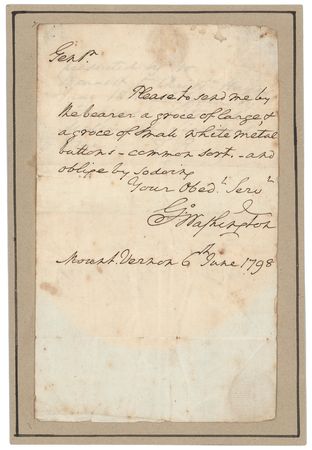 Gent^n.
Please to send me by
the bearer a groce of large, &
a groce of small white metal
buttons - common sort. - and
oblige by so doing
Your Obed^t. Serv^t
G^o Washington
Mount Vernon 6^th June 1798